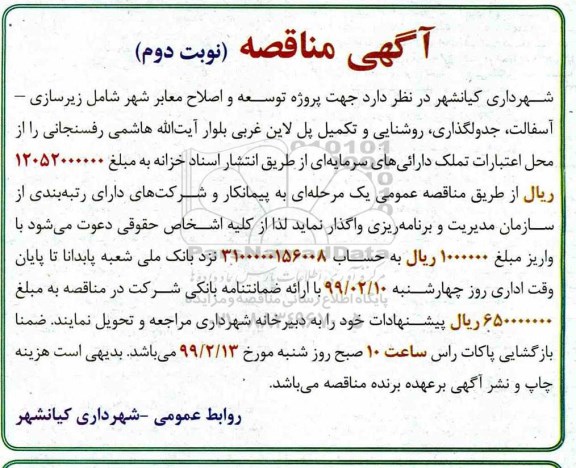 آگهی مناقصه (نوبت دوم)
شهرداری کیانشهر در نظر دارد جهت پروژه توسعه و اصلاح معابر شهر شامل زیرسازی –
آسفالت، جدولگذاری، روشنایی و تکمیل پل لاین غربی بلوار آیت‌الله هاشمی رفسنجانی را از
محل اعتبارات تملک دارائی‌های سرمایه‌ای از طریق انتشار اسناد خزانه به مبلغ ۱۲۰۵۲۰۰۰۰۰۰
ریال از طریق مناقصه عمومی یک مرحله‌ای به پیمانکار و شرکت‌های دارای رتبه‌بندی از
سازمان مدیریت و برنامه‌ریزی واگذار نماید لذا از کلیه اشخاص حقوقی دعوت می‌شود با
واریز مبلغ ۱۰۰۰۰۰۰ ریال به حساب ۳۱۰۰۰۰۰۱۵۶۰۰۸ نزد بانک ملی شعبه پابدانا تا پایان
وقت اداری روز چهارشنبه ۹۹/۰۲/۱۰ با ارائه ضمانتنامه بانکی شرکت در مناقصه به مبلغ
۶۵۰۰۰۰۰۰۰ ریال پیشنهادات خود را به دبیرخانه شهرداری مراجعه و تحویل نمایند. ضمنا
بازگشایی پاکات راس ساعت ۱۰ صبح روز شنبه مورخ ۹۹/۲/۱۳ می‌باشد. بدیهی است هزینه
چاپ و نشر آگهی برعهده برنده مناقصه می‌باشد.
روابط عمومی -شهرداری کیانشهر